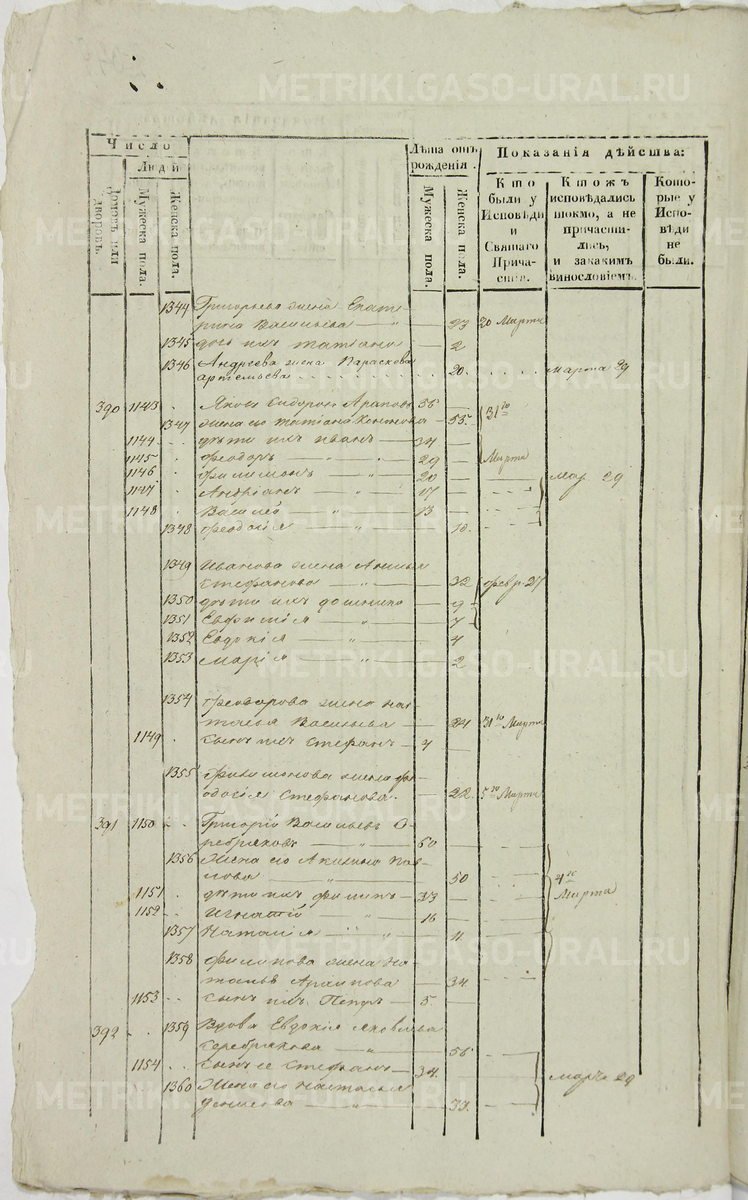 METRIKI.GASO-URAL.RU
Число
Люди
Домовъ или дворовъ.
Мужеска пола.
Женска пола.
Лѣта отъ рожденія.
Мужеска пола.
Женска пола.
Показанія дѣйства:
Кто были у Исповѣди и Святаго Причастія.
Ктожъ исповѣдались токмо, а не причастились, и закакимъ винословіемъ.
Которые у Исповѣди не были.
1344 Григорьева жена Екате
рина Васильева 23 20 Марта
1345 дочь ихъ Татіана 2
1346 Андреева жена Параскова
артемьева 20. марта 29
390 1143 Яковъ Сидоровъ Арапова 56
1347 жена его Татіана 55. 31го
1144 дѣти ихъ иванъ 34
1145 Феодоръ 29 Марта
1146 филимонъ 20 29
1147 Андріанъ 17
1148 Василей 13
1348 феодосія 10.
1349 Иванова жена
Стефанова 32 февр. 27
1350 дѣти ихъ 9
1351 Евфимія 7
1352 Евдокія 4
1353 марія 2
1354 Феодорова жена На
талья Васильева 24 31го Марта
1149 сынъ ихъ Стефанъ 4
1355 Филимонова жена фе
одосія Стефанова. 22. Марта
391 1150 Григорій Васильевъ С
ребряковъ 60
1356 Жена его Акилина Пав
лова 50 4го
1151 дѣти ихъ филипъ 33 Марта
1152 Игнатій 16
1357 Наталія 11
1358 филипова жена На
талья Арапова 34
1153 сынъ ихъ Петръ 5.
392 1359 Вдова Евдокія Яковлева
Серебрякова 56
1154 сынъ ее Стефанъ 34. марта 29
1360 Жена его Наталья
33.